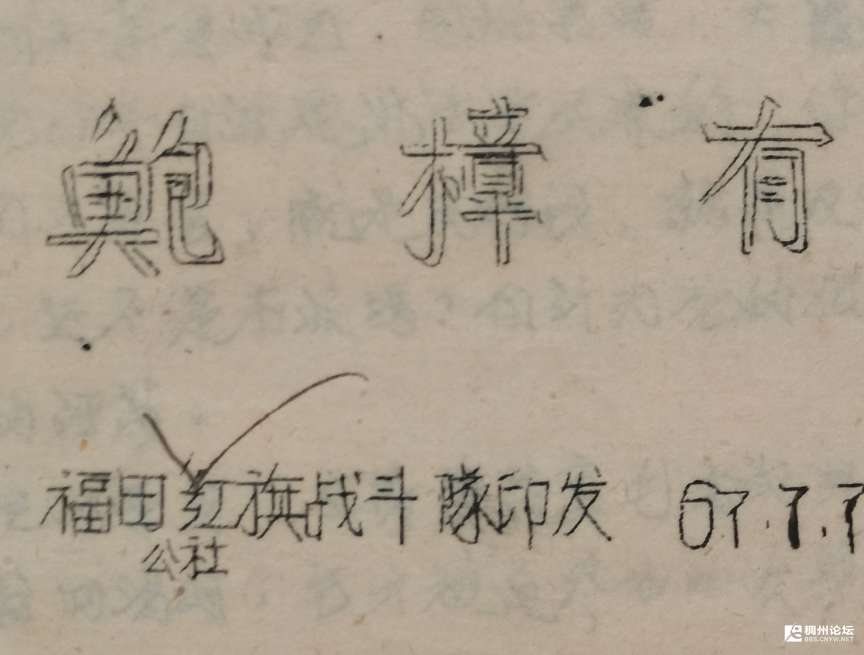 鲍樟有
福田红旗战斗隊印发 67.7.7
公社
稠州论坛
BBS.CNYW.NET